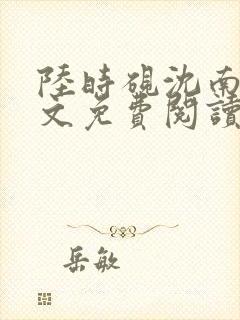 陸時硯沈南
文免費閱讀
岳敏